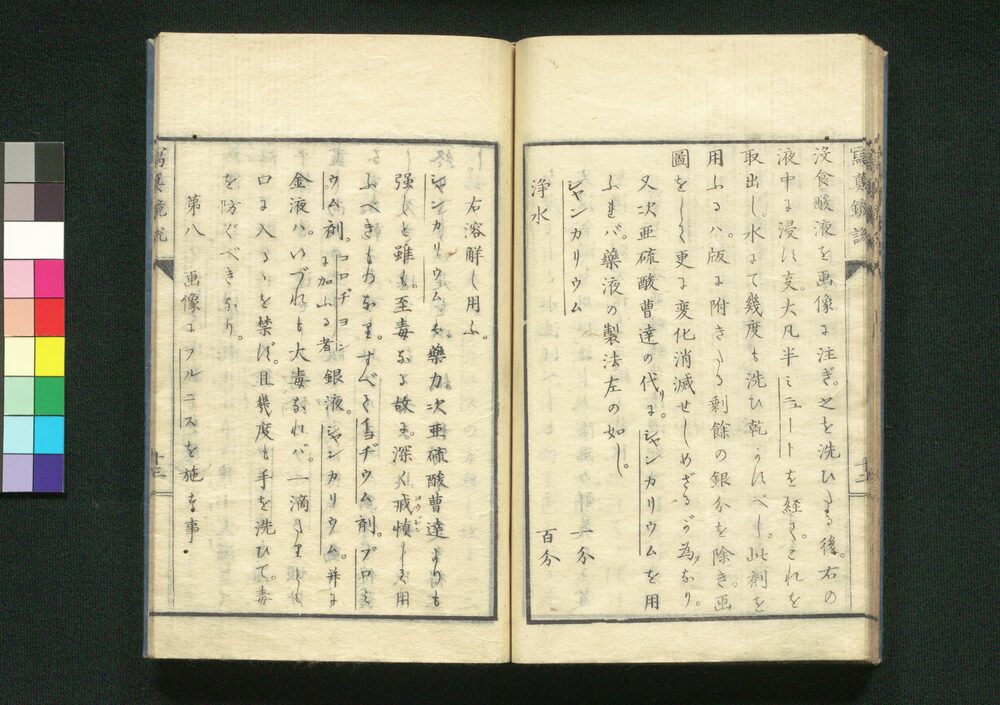 没食酸液を画像に注ぎ。之を洗ひたる後。右の
液中に浸す亥。大凡半ミニュートを経て。これを
取出し。水にて幾度も洗ひ乾かすべし。此剤を
用ふるハ。版に附きたる剰餘の銀分を除き。画
圖をして更に変化消滅せしめざるが為なり。
又次亜硫酸曹達の代りに。シャンカリウムを用
ふれバ。藥液の製法左の如し。
シャンカリウム 一分
浄水 百分
右溶解し用ふ。
シャンカリウムハ藥力。次亜硫酸曹達よりも
強しと雖も至毒なる故に。深く戒慎して用
ふべきものなり。すべてイヨヂウム剤。ブロミ
ウム剤。コロヂヨンに加ふる者 銀液。シャンカリウム。并に
金液ハ。いづれも大毒なれバ。一滴たりとも
口に入るゝを禁ず。且幾度も手を洗ひて。毒
を防ぐべきなり。
第八 画像にフルニスを施す事
寫真鏡説
十二
寫真鏡説
十三